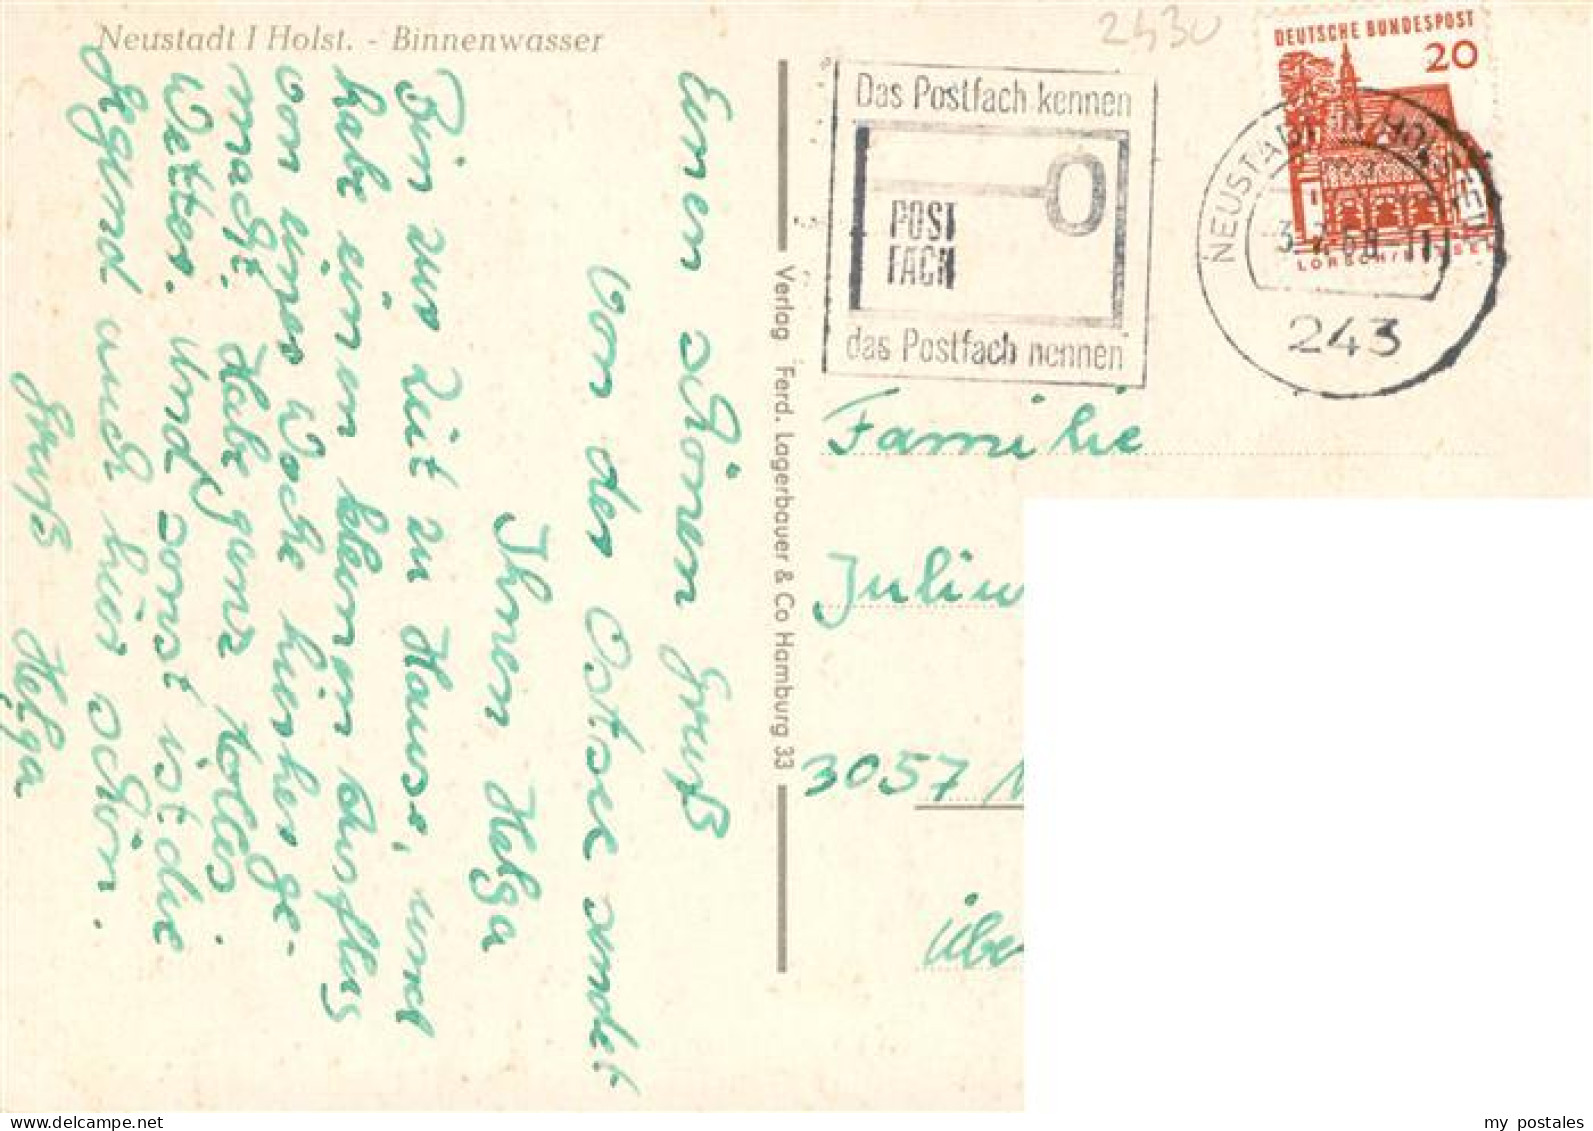 Neustadt I Holst. - Binnenwasser
2430
DEUTSCHE BUNDESPOST
20
LORSCH/HESSEN
NEUSTADT IN HOLSTEIN
243
Das Postfach kennen
POST
FACH
das Postfach nennen
Einen schönen Gruß
von der Ostsee sendet
Ihnen Helga
Bin zur Zeit zu Hause, und
habe einen kleinen Ausflug
von einer Woche hierher ge-
macht. Habe ganz tolles
Wetter. Und sonst ist die
Gegend auch hier schön.
Gruß Helga
Verlag Ferd. Lagerbauer & Co Hamburg 33
Familie
Juliu
3057
übe
my postales